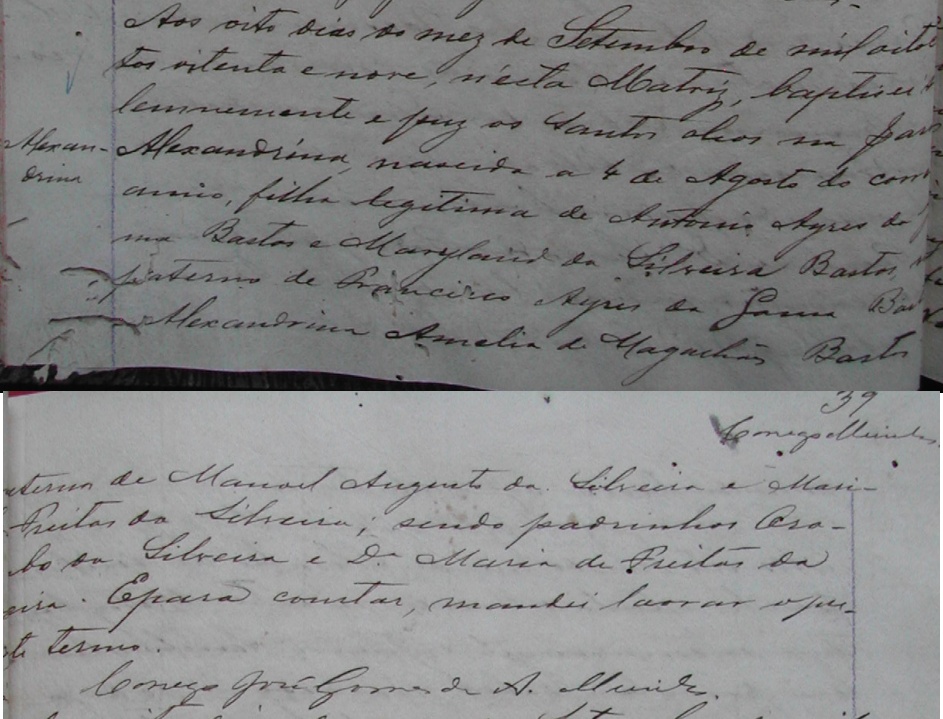 Aos oito dias do mez de Setembro de mil oito
tos oitenta e nove, n'esta Matriz, baptisei
lemnemente e puz os Santos oleos na
Alexan-
drina
Alexandrina, nascida a 4 de Agosto do corr
anno, filha legitima de Antonio Ayres da
ma Bastos e Maryland da Silveira Bastos,
paterno de Francisco Ayres da Gama Bas
Alexandrina Amelia de Magalhães Bastos
39
Conego Mendes
aterno de Manoel Augusto da Silveira e Mari-
Freitas da Silveira; sendo padrinhos
do da Silveira e Da Maria de Freitas da
eira. E para constar, mandei lavrar o pre-
te termo.
Conego José Gomes de A. Mendes.